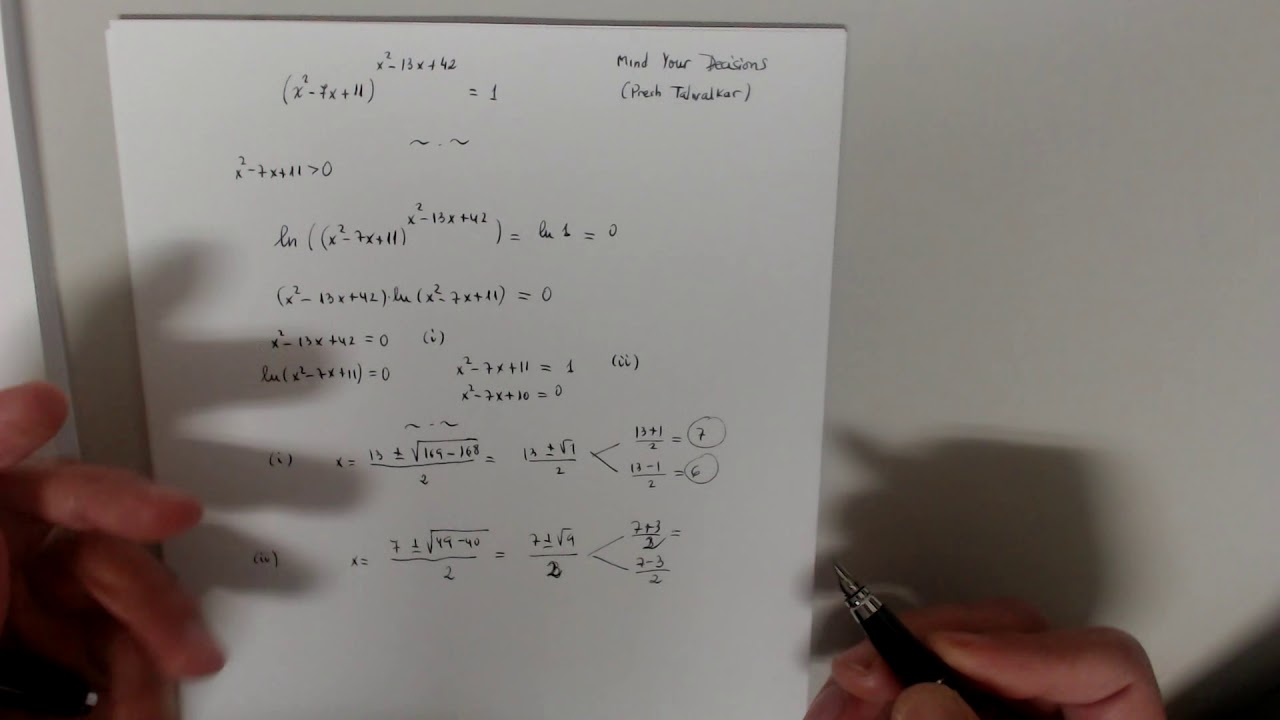 (x²-7x+11)^(x²-13x+42) = 1
Mind Your Decisions
(Presh Talwalkar)
~ . ~
x²-7x+11>0
ln((x²-7x+11)^(x²-13x+42)) = ln 1 = 0
(x²-13x+42)·ln(x²-7x+11) = 0
x²-13x+42 = 0 (i)
ln(x²-7x+11) = 0 x²-7x+11 = 1 (ii)
x²-7x+10 = 0
~ . ~
(i) x = (13 ± √(169-168))/2 = (13 ± √1)/2 < (13+1)/2 = 7
(13-1)/2 = 6
(ii) x = (7 ± √(49-40))/2 = (7 ± √9)/2 < (7+3)/2 =
(7-3)/2